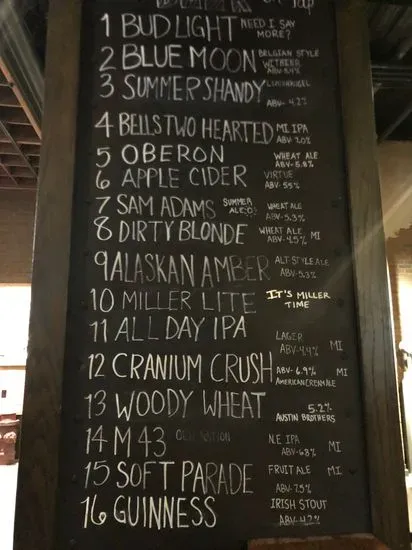 ON TAP
1 BUD LIGHT NEED I SAY MORE?
2 BLUE MOON BELGIAN STYLE
WITBIER
ABV-5.4%
3 SUMMER SHANDY
ABV-4.2%
4 BELLS TWO HEARTED MI IPA
ABV-7.0%
5 OBERON WHEAT ALE
ABV-5.8%
6 APPLE CIDER VIRTUE
ABV-5.5%
7 SAM ADAMS SUMMER ALE WHEAT ALE
ABV-5.3%
8 DIRTY BLONDE WHEAT ALE
ABV-4.5% MI
9 ALASKAN AMBER ALT-STYLE ALE
ABV-5.3%
10 MILLER LITE IT'S MILLER
TIME
11 ALL DAY IPA LAGER
ABV-4.9% MI
12 CRANIUM CRUSH ABV-6.9% MI
AMERICAN CREAM ALE
13 WOODY WHEAT 5.2%
AUSTIN BROTHERS
14 M43 N.E. IPA
ABV-6.8% MI
15 SOFT PARADE FRUIT ALE MI
ABV-7.5%
16 GUINNESS IRISH STOUT
ABV-4.2%